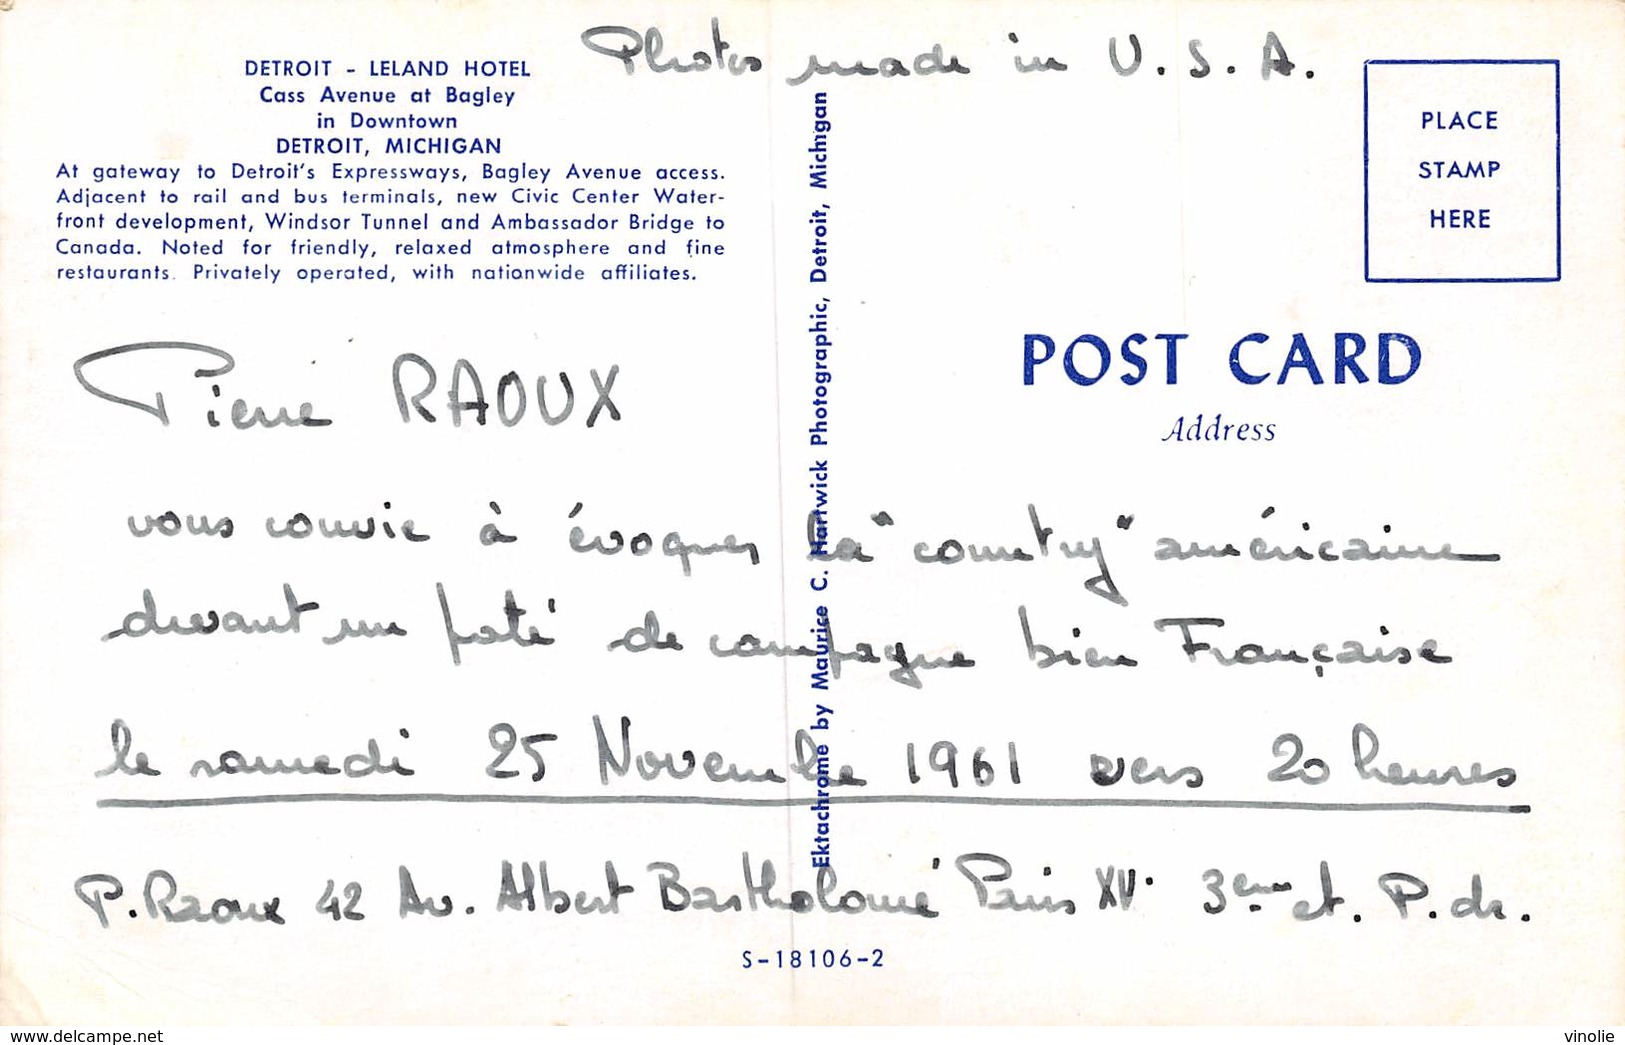 Photos made in U.S.A.
DETROIT - LELAND HOTEL
Cass Avenue at Bagley
in Downtown
DETROIT, MICHIGAN
At gateway to Detroit's Expressways, Bagley Avenue access.
Adjacent to rail and bus terminals, new Civic Center Water-
front development, Windsor Tunnel and Ambassador Bridge to
Canada. Noted for friendly, relaxed atmosphere and fine
restaurants. Privately operated, with nationwide affiliates.
PLACE
STAMP
HERE
POST CARD
Address
Ektachrome by Maurice C. Hartwick Photographic, Detroit, Michigan
Pierre RAOUX
vous convie à évoquer la "country" américaine
devant un paté de campagne bien Française
le samedi 25 Novembre 1961 vers 20 heures
P. Raoux 42 Av. Albert Bartholomé Paris XV. 3eme et. P. dr.
S-18106-2
https://www.delcampe.net
vinolie